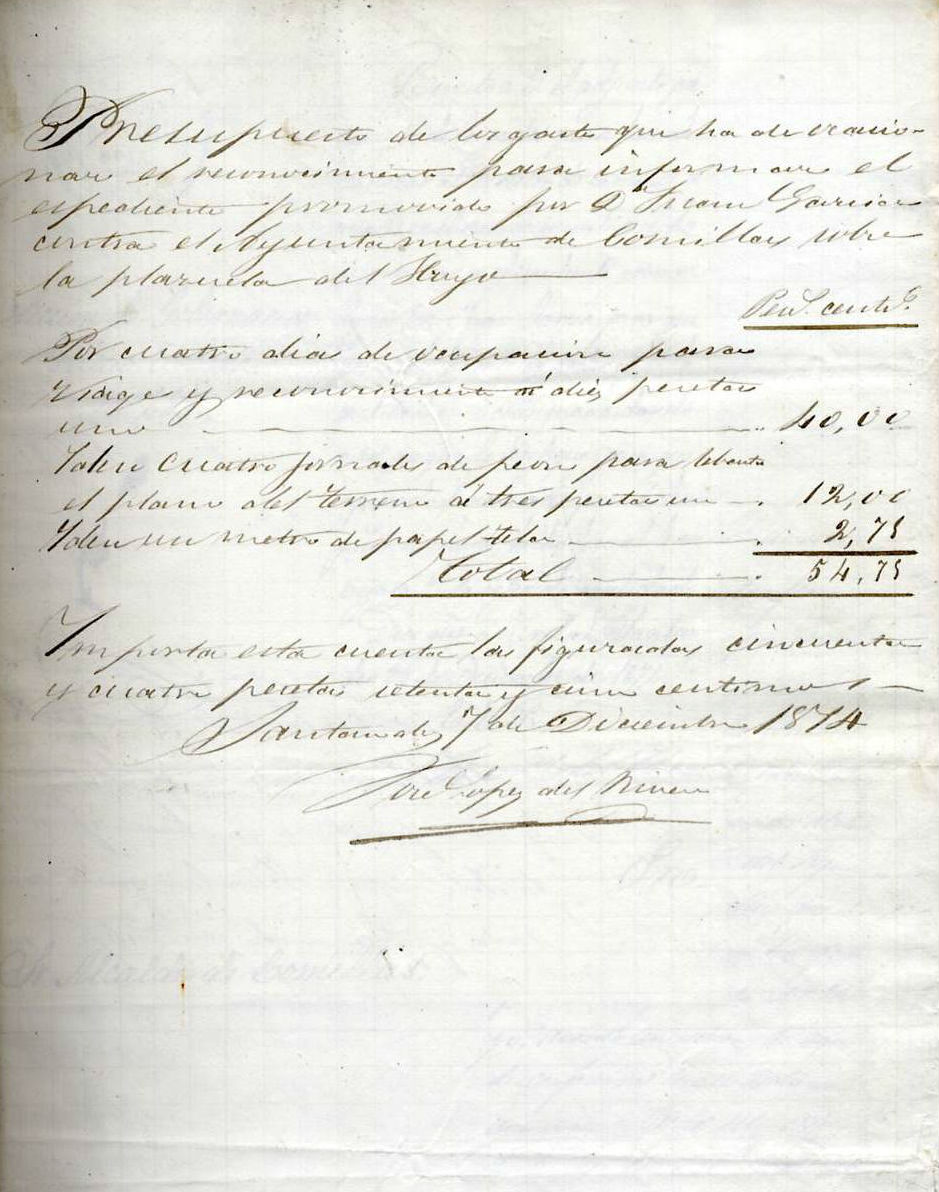 Presupuesto de los gastos que ha de ocacio-
nar el reconocimiento para informar el
espediente promovido por D. Juan Garcia
contra el Ayuntamiento de Comillas sobre
la plazuela del
Pest. cents.
Por cuatro dias de ocupacion para
viage y reconocimiento á diez pesetas
uno 40,00
Idem cuatro jornales de peon para lebantar
el plano del terreno á tres pesetas un 12,00
Idem un metro de papel tela 2,75
Total 54,75
Importa esta cuenta las figuradas cincuenta
y cuatro pesetas setenta y cinco centimos
Santander 7 de Diciembre 1874
José Lopez del Rivero
Sr. Alcalde de Comillas